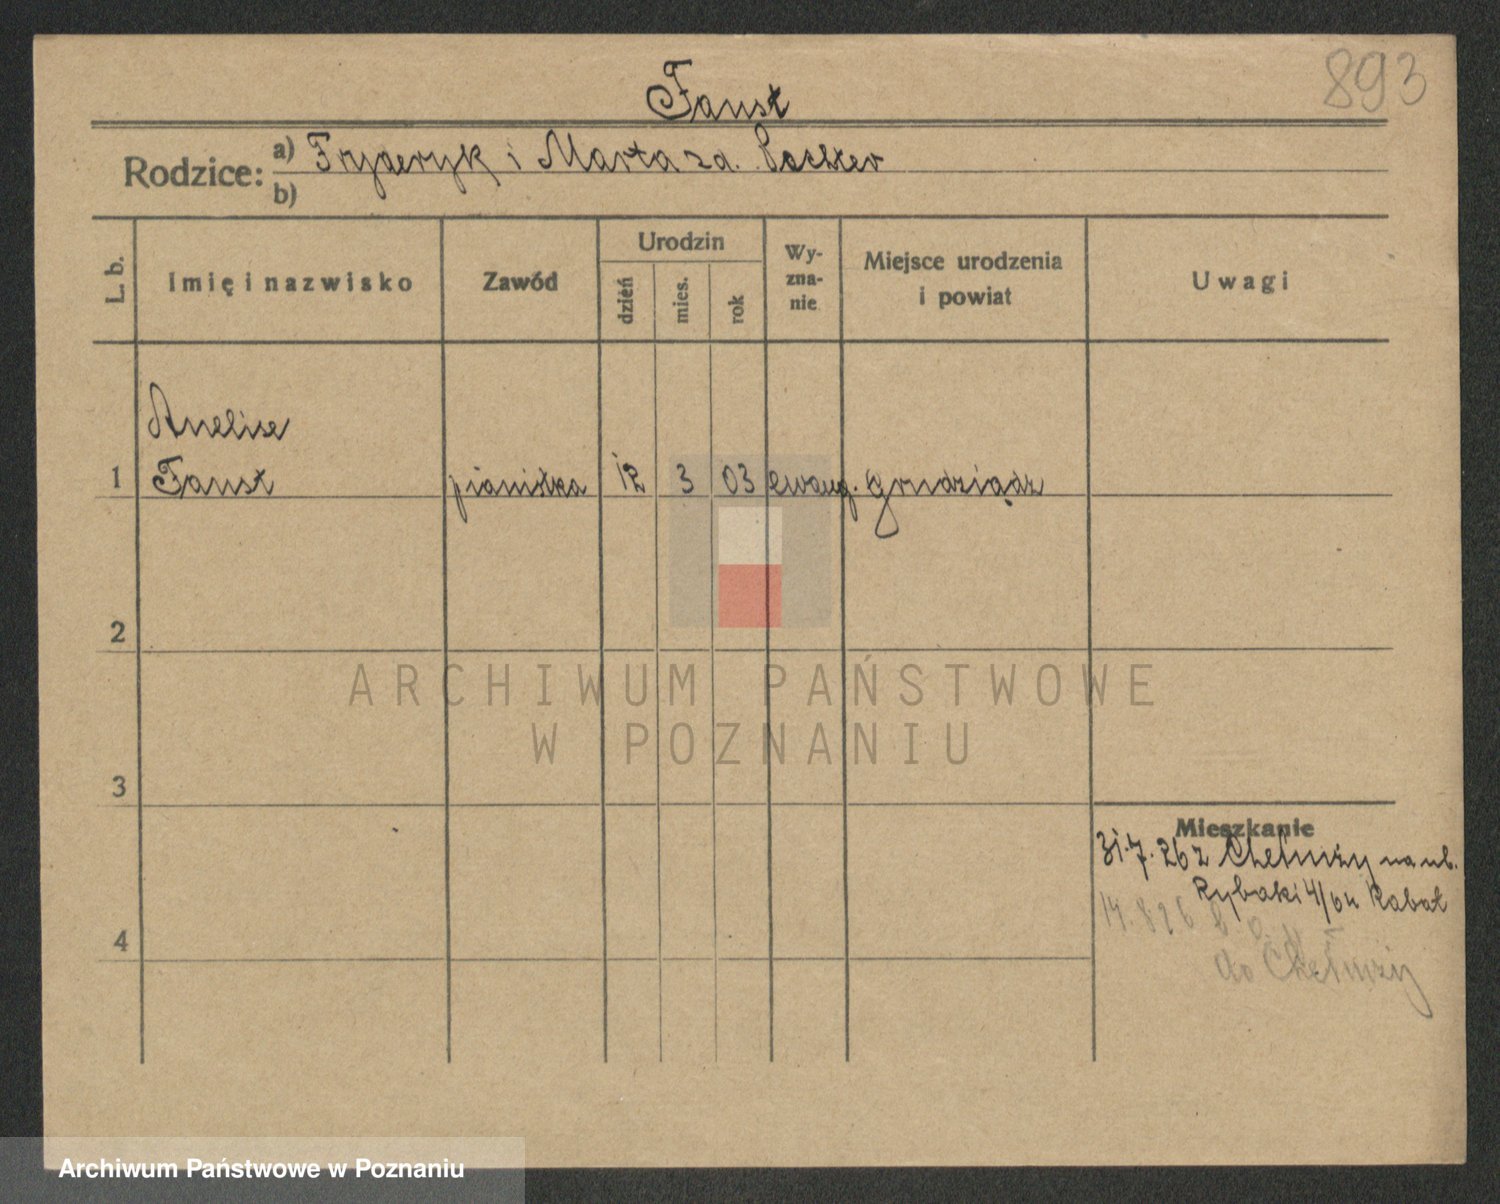 893
Faust
Rodzice: a) Fryderyk i Marta zd.
b)
L. b. Imię i nazwisko Zawód Urodzin dzień mies. rok Wy-zna-nie Miejsce urodzenia i powiat Uwagi
Anelise
1 Faust pianistka 12 3 03 ewang. Grudziądz
2
ARCHIWUM PAŃSTWOWE
W POZNANIU
3
Mieszkanie
31.7.26 z Chełmży na ub.
Rybaki 4/6
4
do Chełmży
Archiwum Państwowe w Poznaniu